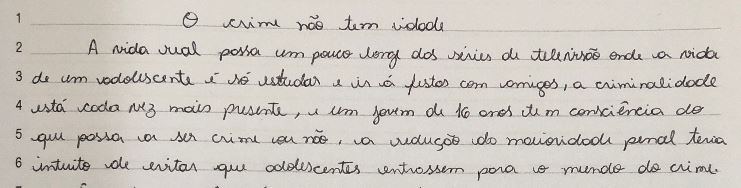 1 O crime não tem idade
2 A vida real passa um pouco longe dos séries de televisão onde a vida
3 de um adolescente é só estudar e ir á festas com amigos, a criminalidade
4 está cada vez mais presente, e um jovem de 16 anos tem consciência do
5 que possa a ser crime ou não, a redução da maioridade penal teria
6 intuito de evitar que adolescentes entrassem para o mundo do crime.